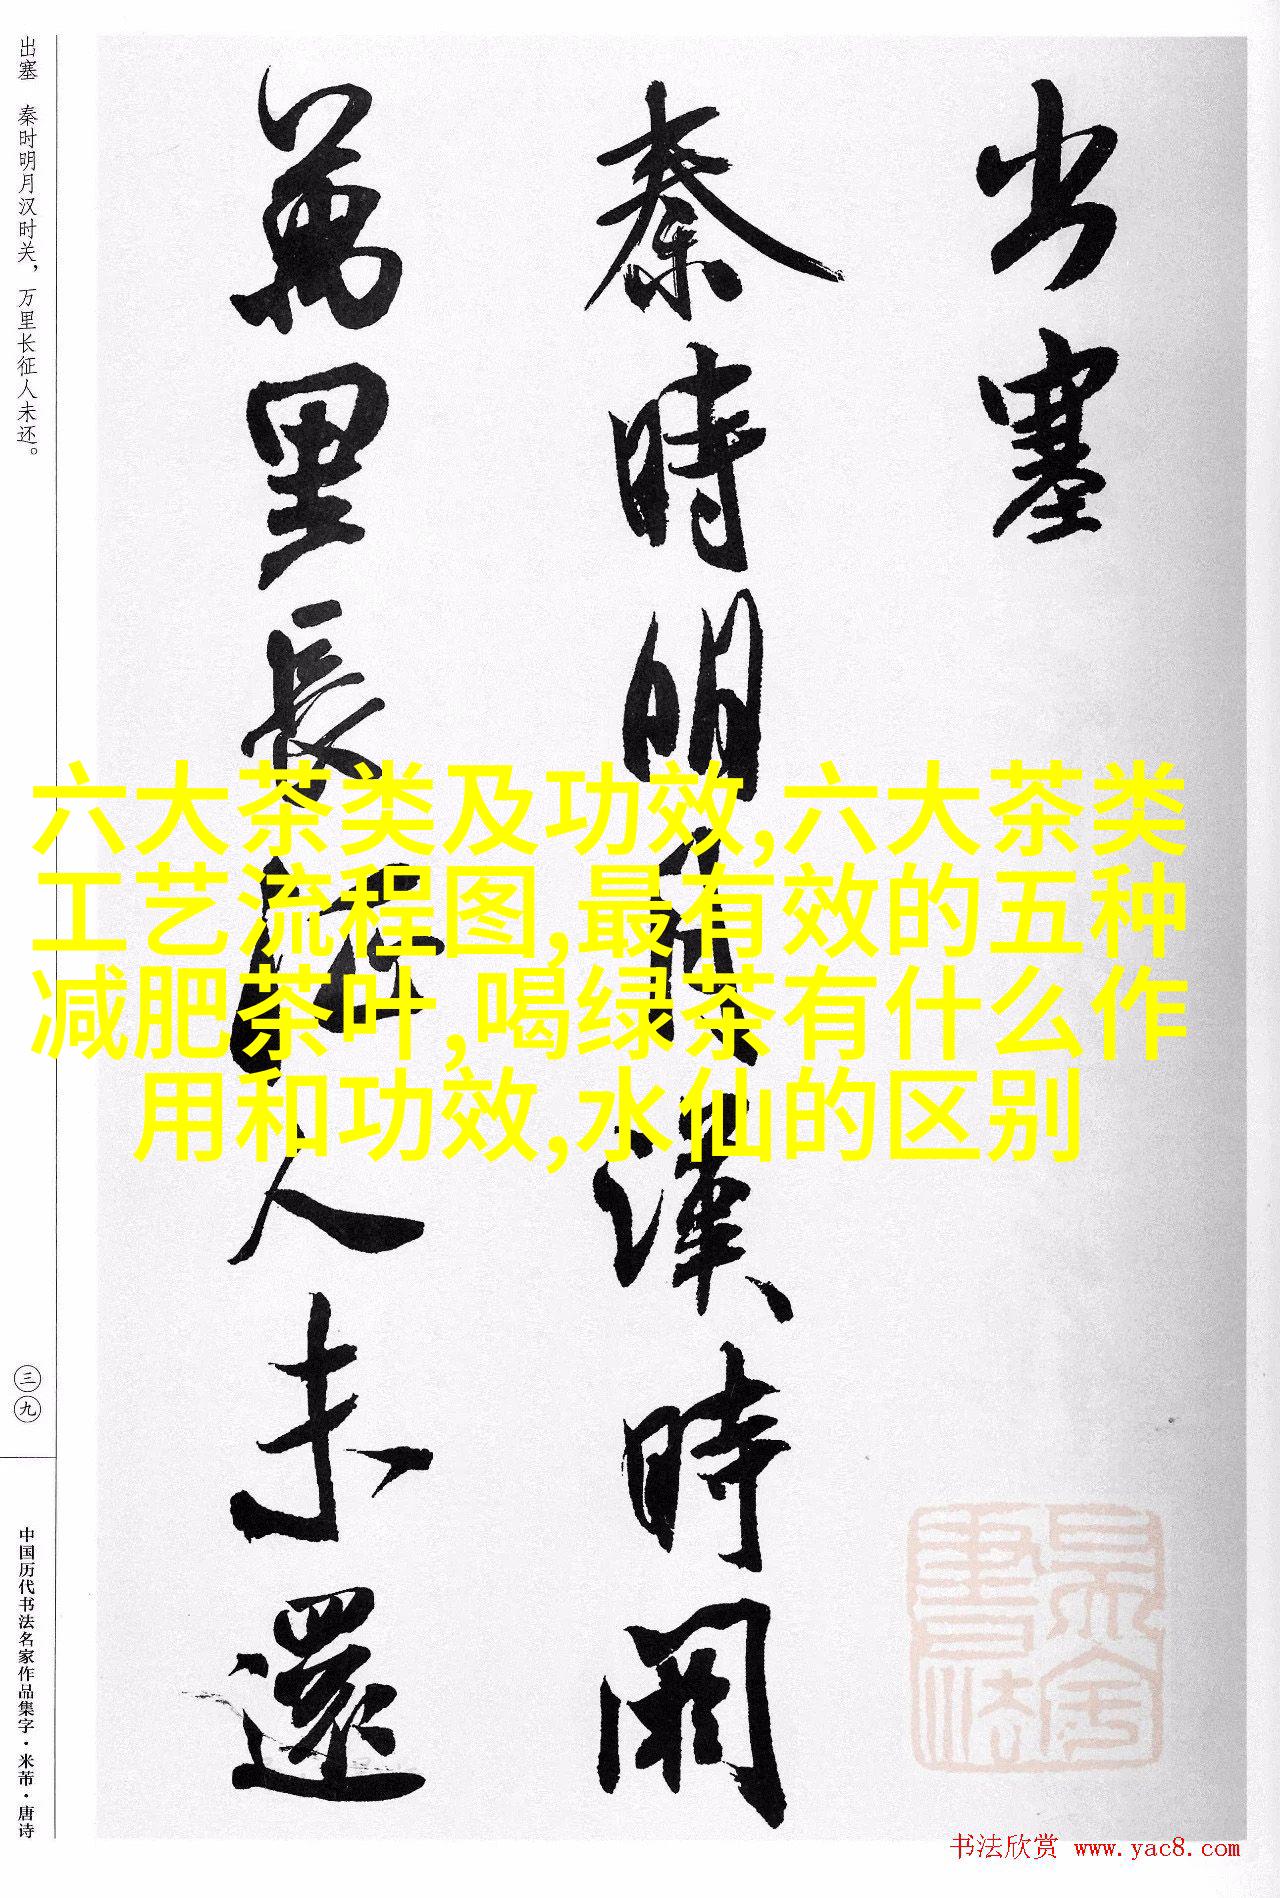 出塞
秦時明月漢時関
萬里長征人未還
出塞 秦时明月汉时关，万里长征人未还。
三九
中国历代书法名家作品集字·米芾·唐诗
六大茶类及功效,六大茶类
工艺流程图,最有效的五种
减肥茶叶,喝绿茶有什么作
用和功效,水仙的区别
书法欣赏 www.yac8.com